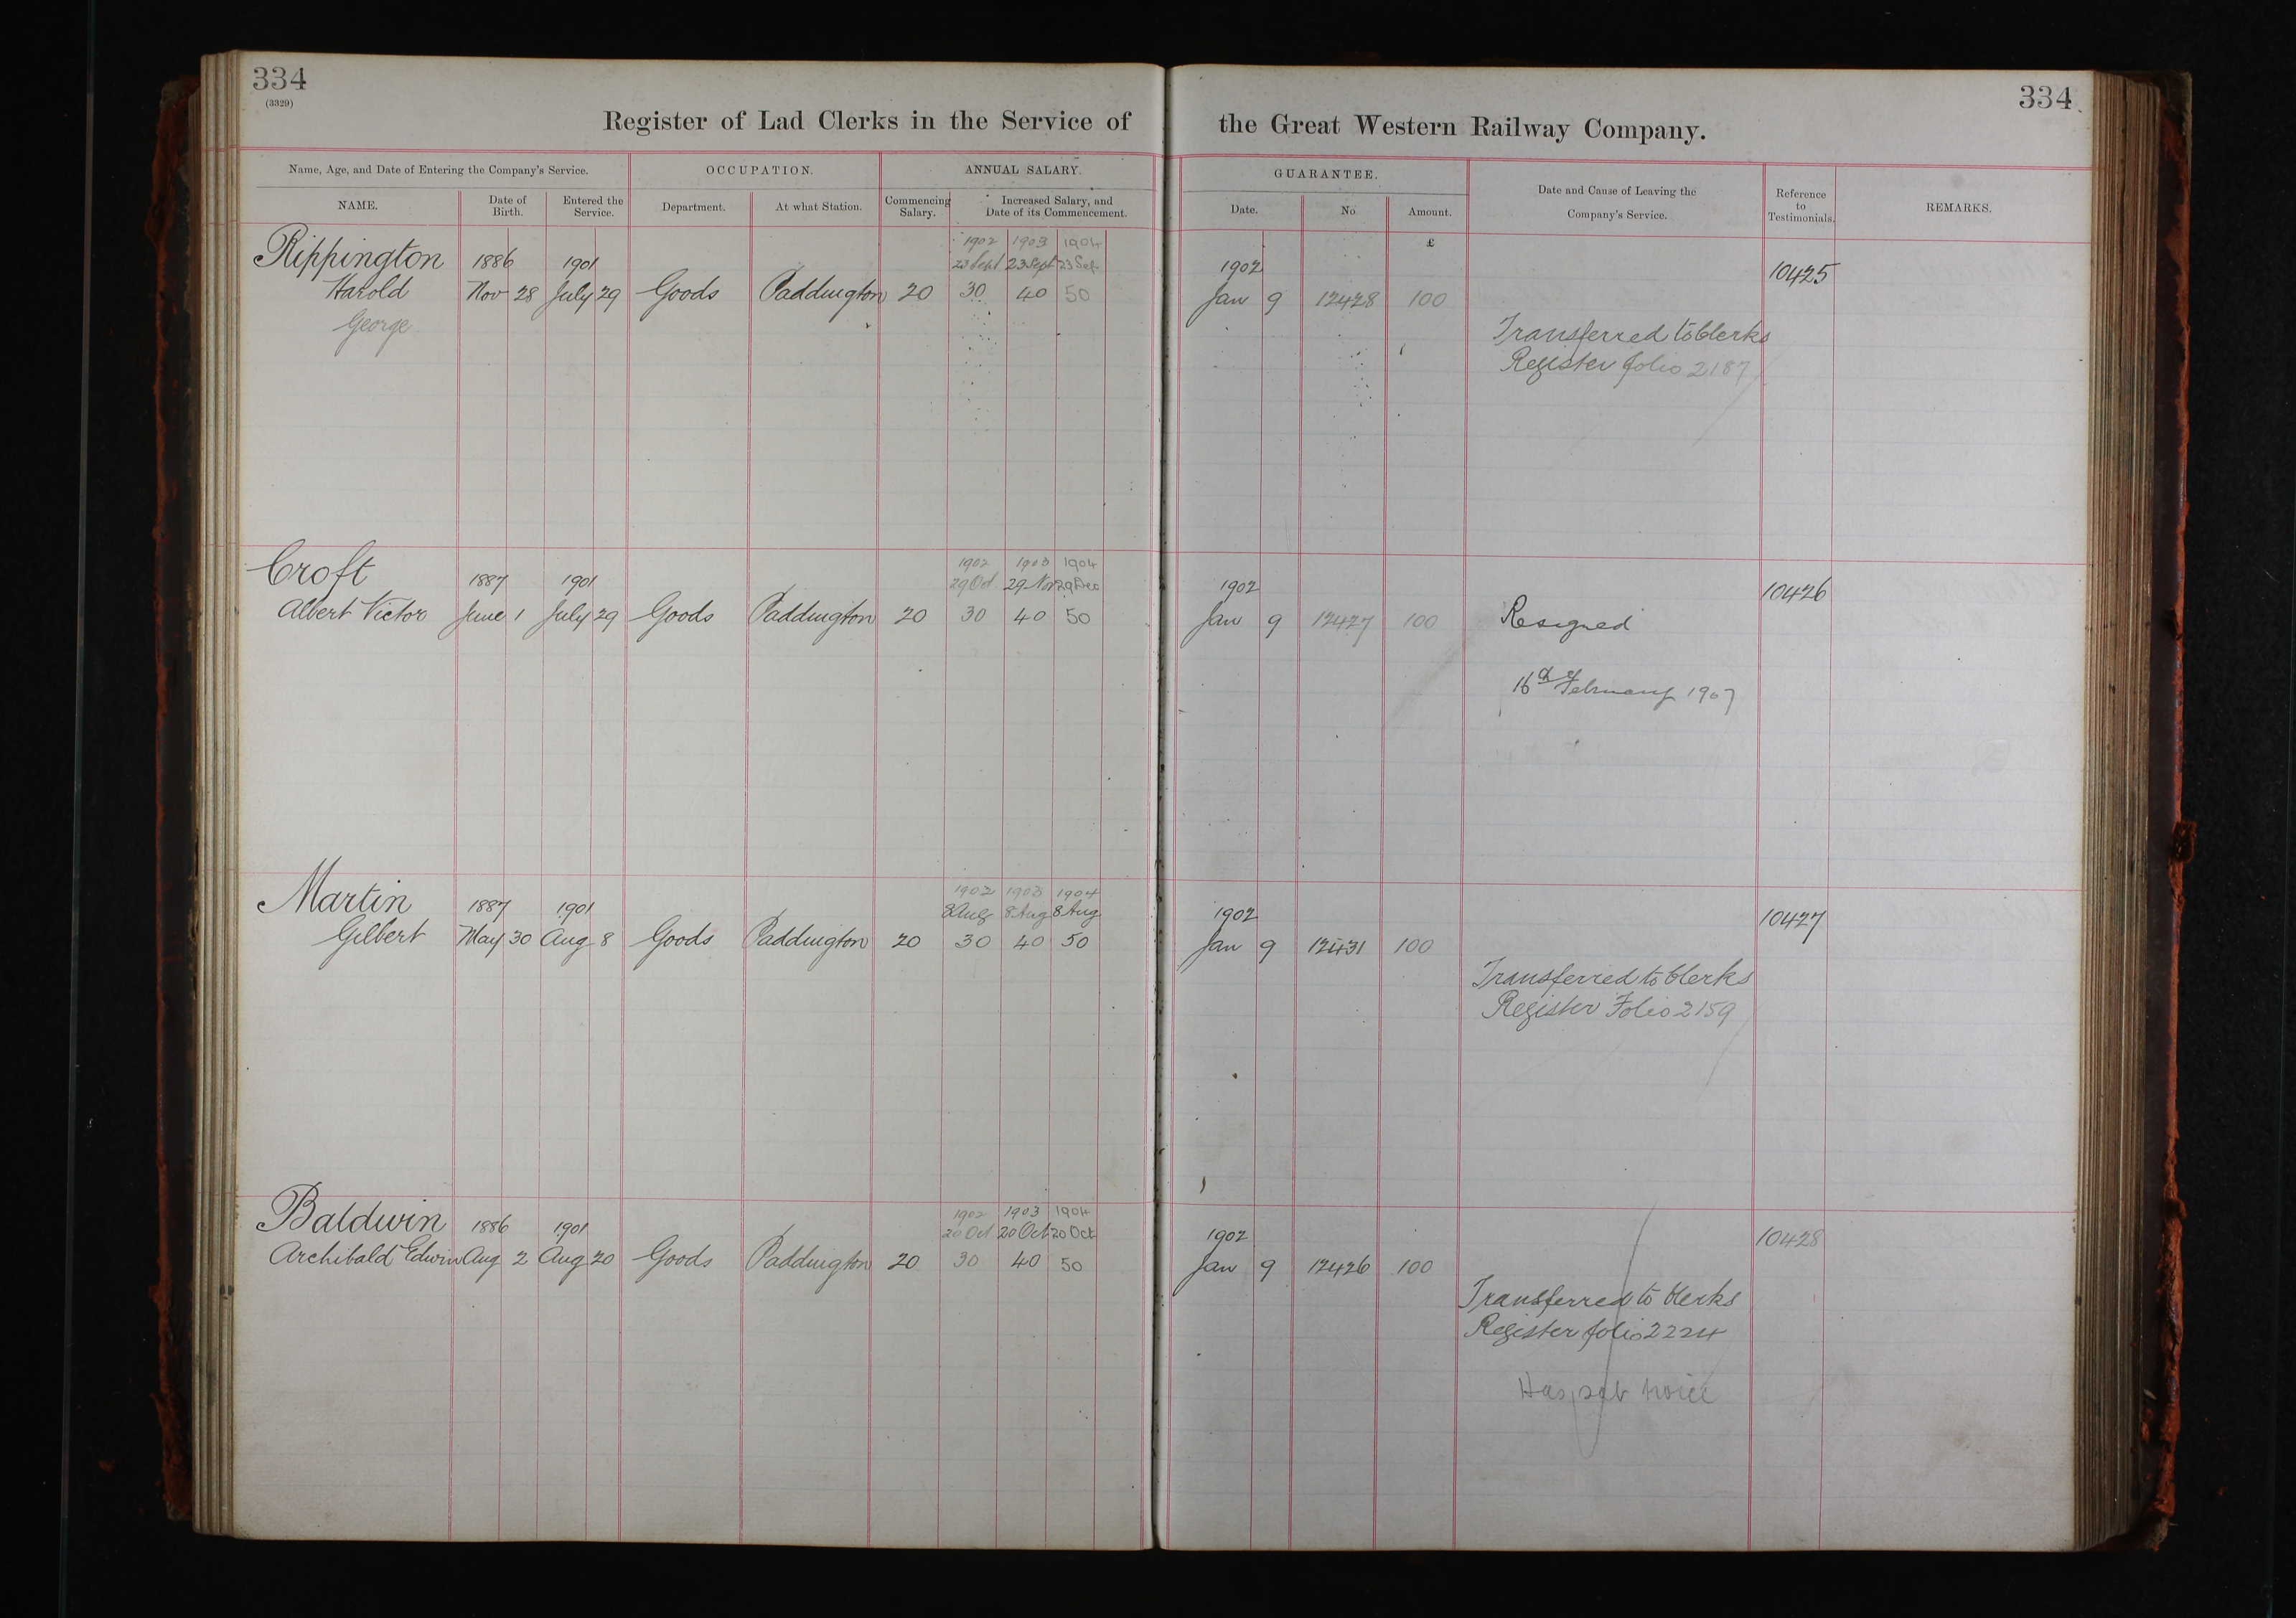 334
(3329)
334
Register of Lad Clerks in the Service of the Great Western Railway Company.
Name, Age, and Date of Entering the Company's Service. OCCUPATION. ANNUAL SALARY. GUARANTEE. Date and Cause of Leaving the Company's Service. Reference to Testimonials. REMARKS.
NAME. Date of Birth. Entered the Service. Department. At what Station. Commencing Salary. Increased Salary, and Date of its Commencement. Date. No Amount.
£
1902 1903 1904
Rippington 1886 1901 23 Sept 23 Sept 23 Sep 1902 10425
Harold Nov 28 July 29 Goods Paddington 20 30 40 50 Jan 9 12428 100
George
Transferred to Clerks
Register folio 2187
1902 1903 1904
Croft 1887 1901 29 Oct 29 Nov 29 Dec 1902 10426
Albert Victor June 1 July 29 Goods Paddington 20 30 40 50 Jan 9 12427 100 Resigned
16th February 1907
1902 1903 1904
Martin 1887 1901 8 Aug 8 Aug 8 Aug 1902 10427
Gilbert May 30 Aug 8 Goods Paddington 20 30 40 50 Jan 9 12431 100
Transferred to Clerks
Register Folio 2159
1902 1903 1904
Baldwin 1886 1901 20 Oct 20 Oct 20 Oct 1902 10428
Archibald Edwin Aug 2 Aug 20 Goods Paddington 20 30 40 50 Jan 9 12426 100
Transferred to Clerks
Register folio 2224